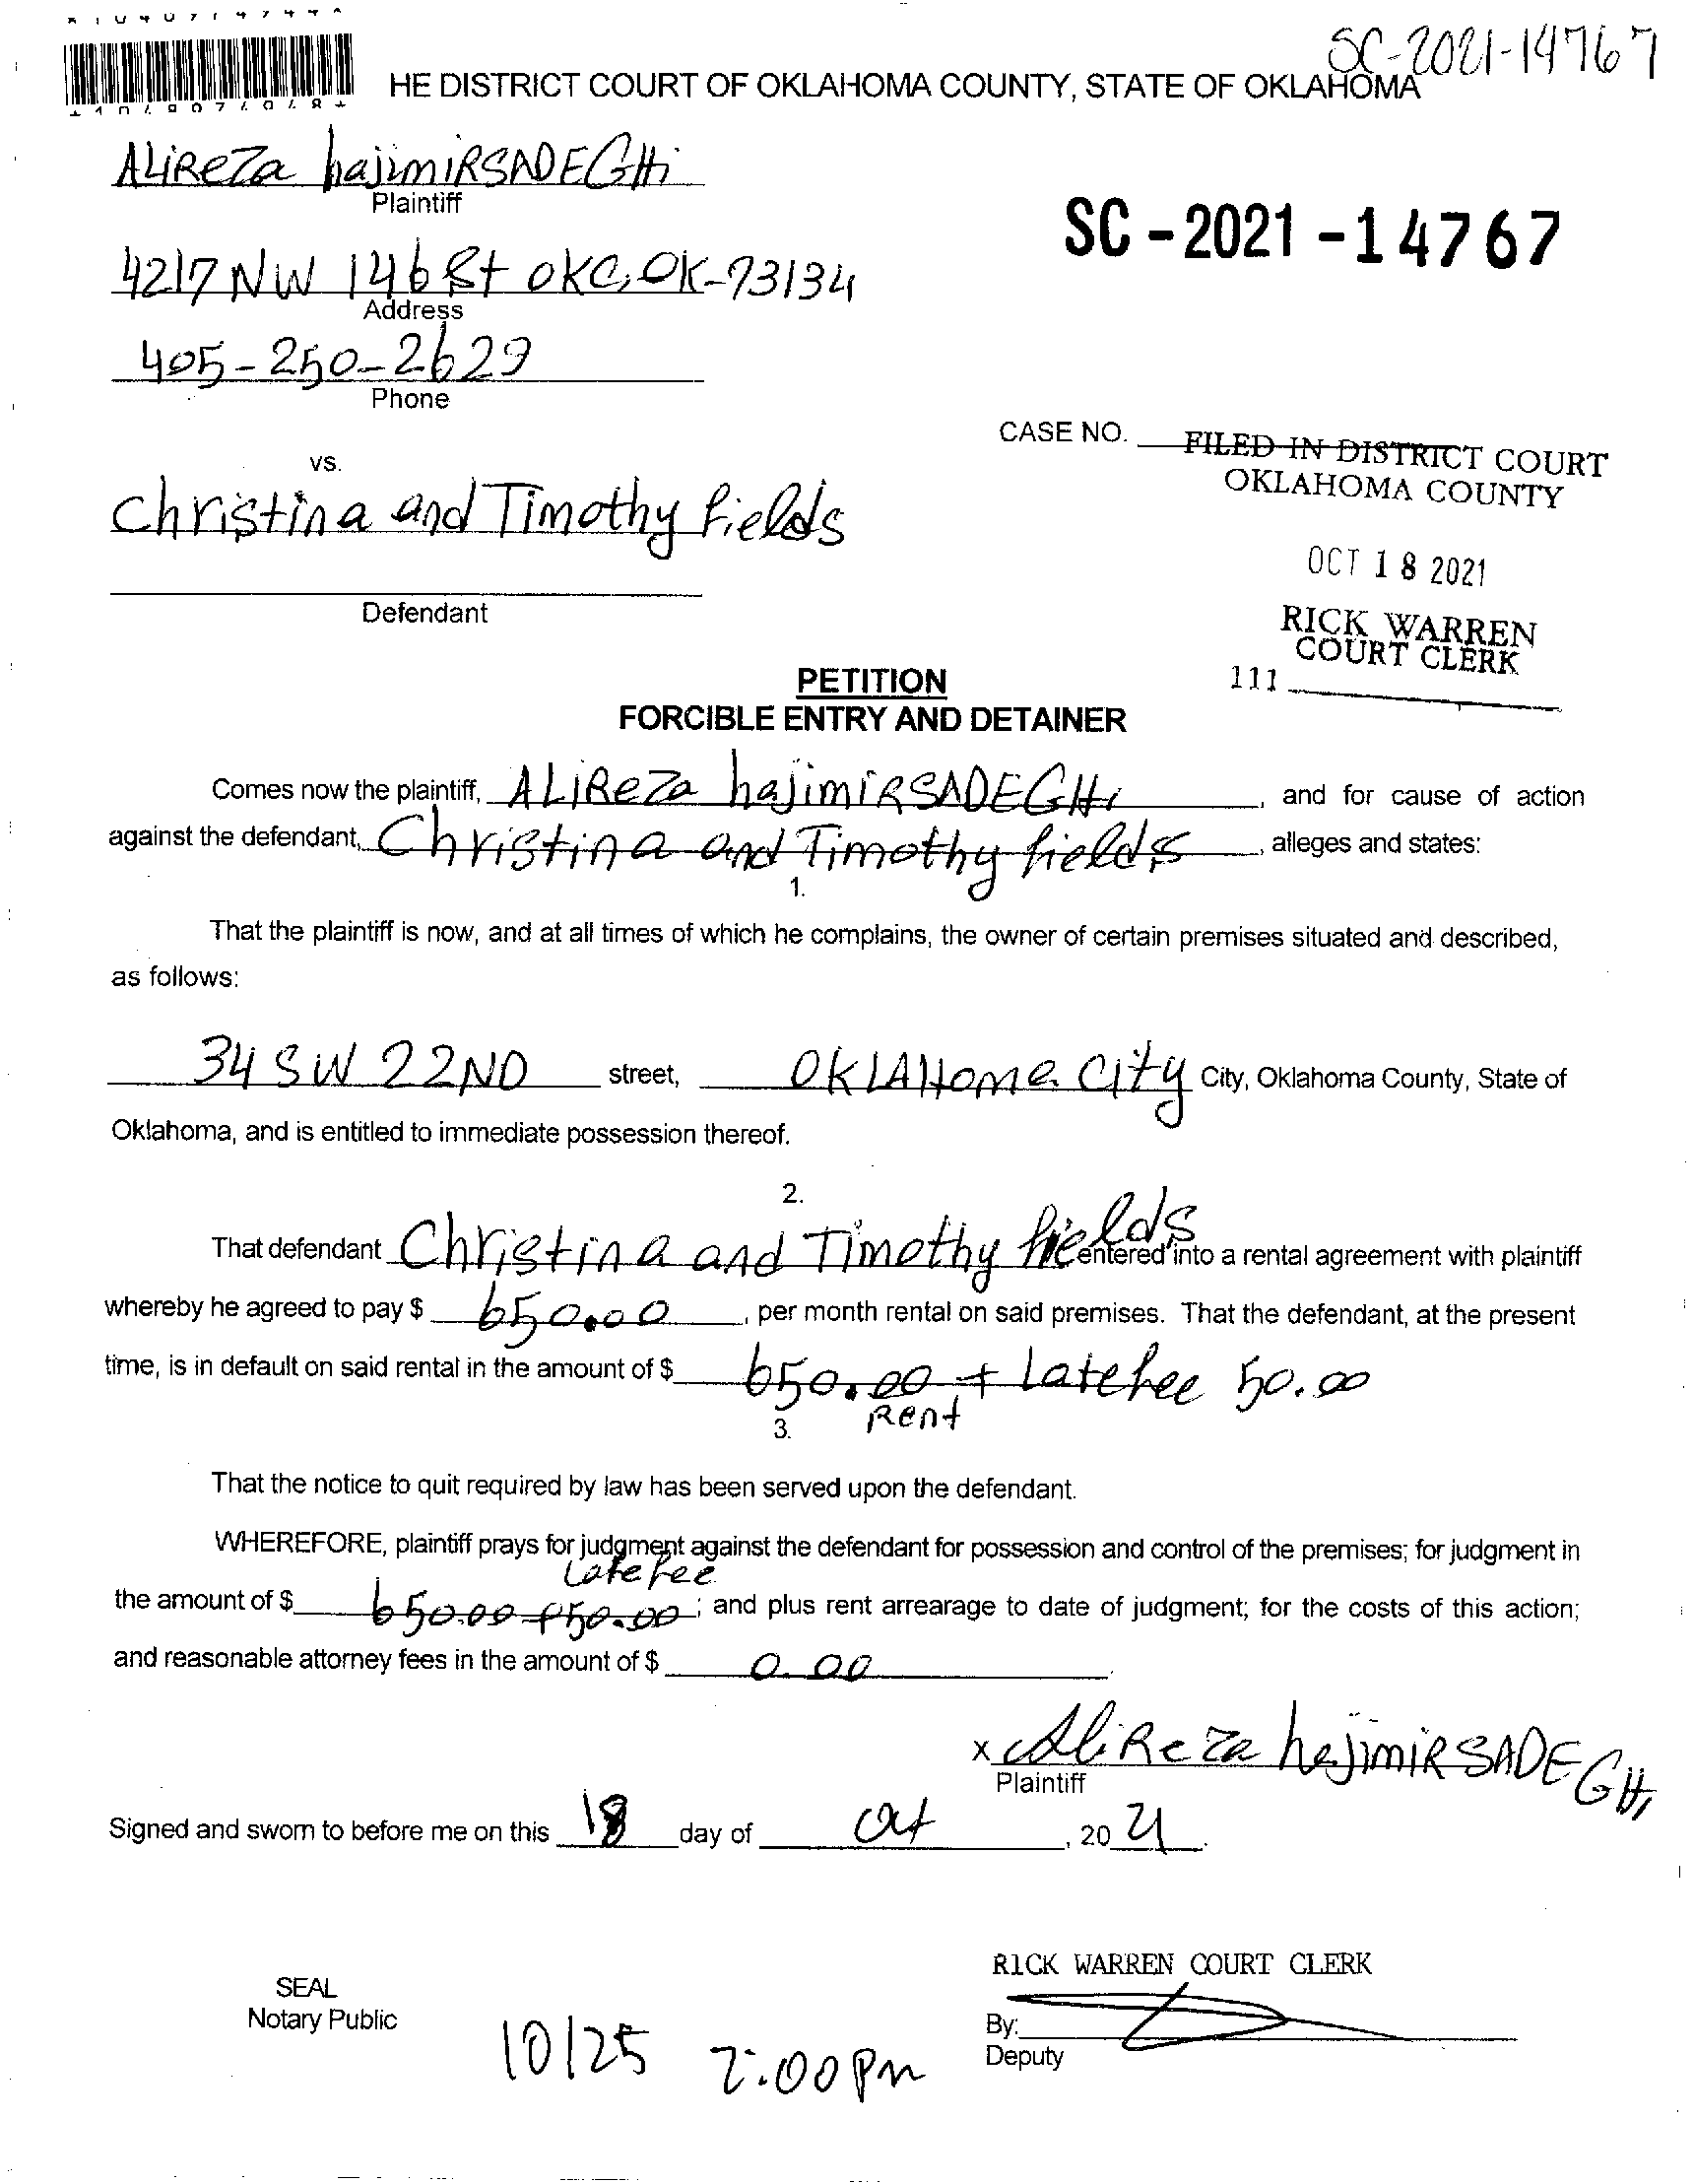 SC-2021-14767
HE DISTRICT COURT OF OKLAHOMA COUNTY, STATE OF OKLAHOMA
ALiReza hajimiRSADEGHi
Plaintiff
SC - 2021 - 14767
4217 NW 146 St OKC, OK-73134
Address
405-250-2629
Phone
CASE NO.
FILED IN DISTRICT COURT
OKLAHOMA COUNTY
vs.
Christina and Timothy fields
OCT 18 2021
Defendant
RICK WARREN
COURT CLERK
111
PETITION
FORCIBLE ENTRY AND DETAINER
Comes now the plaintiff, ALiReza hajimiRSADEGHi, and for cause of action
against the defendant, Christina and Timothy fields, alleges and states:
1.
That the plaintiff is now, and at all times of which he complains, the owner of certain premises situated and described,
as follows:
34 SW 22ND street, OKLAHoma City City, Oklahoma County, State of
Oklahoma, and is entitled to immediate possession thereof.
2.
That defendant Christina and Timothy fields entered into a rental agreement with plaintiff
whereby he agreed to pay $ 650.00, per month rental on said premises. That the defendant, at the present
time, is in default on said rental in the amount of $ 650.00 + Latefee 50.00
Rent
3.
That the notice to quit required by law has been served upon the defendant.
WHEREFORE, plaintiff prays for judgment against the defendant for possession and control of the premises; for judgment in
Latefee
the amount of $ 650.00 + 50.00; and plus rent arrearage to date of judgment; for the costs of this action;
and reasonable attorney fees in the amount of $ 0.00
x AliReza hajimiRSADEGHi
Plaintiff
Signed and sworn to before me on this 18 day of Oct, 20 21.
RICK WARREN COURT CLERK
SEAL
Notary Public
By:
Deputy
10/25 2:00 Pm